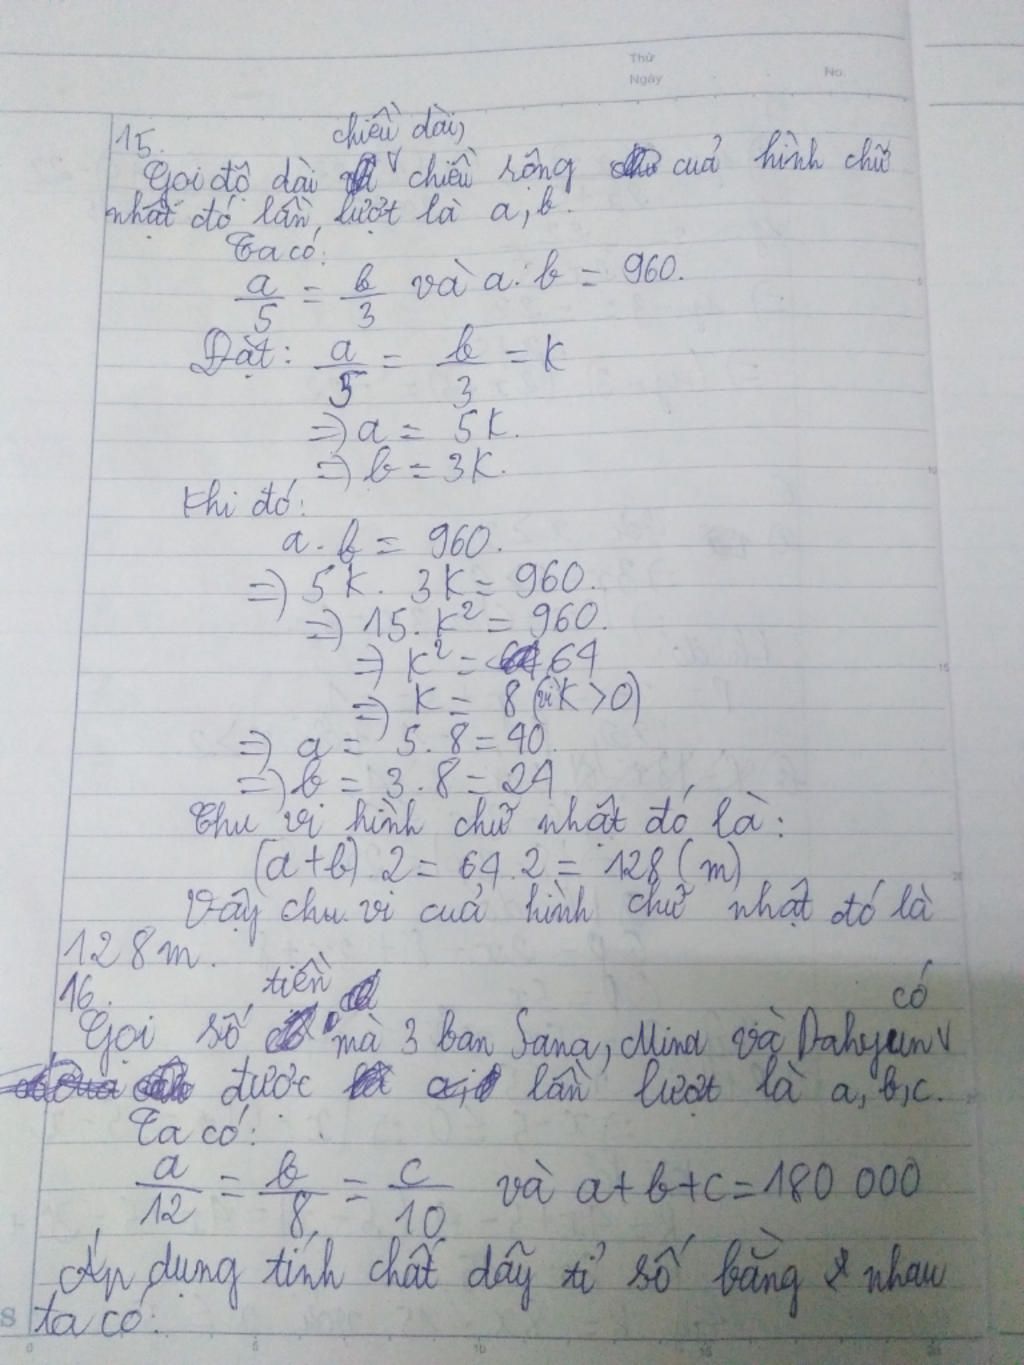 Thứ
Ngày
No.
15.
chiều dài,
Gọi độ dài ˅ chiều rộng của hình chữ
nhật đó lần lượt là a, b.
Ta có:
a/5 = b/3 và a. b = 960.
Đặt: a/5 = b/3 = K
=> a = 5K.
=> b = 3K.
Khi đó:
a. b = 960.
=> 5K. 3K = 960.
=> 15. K² = 960.
=> K² = 64
=> K = 8 (vì K > 0)
=> a = 5. 8 = 40.
=> b = 3. 8 = 24
Chu vi hình chữ nhật đó là:
(a+b). 2 = 64. 2 = 128 (m)
Vậy chu vi cuả hình chữ nhật đó là
128m.
16.
tiền
có
Gọi số mà 3 bạn Sana, Mina và Dahyun ˅
được lần lượt là a, b, c.
Ta có:
a/12 = b/8 = c/10 và a+b+c = 180 000
Áp dụng tính chất dãy tỉ số bằng nhau
ta có:
S
0 5 10 15 20